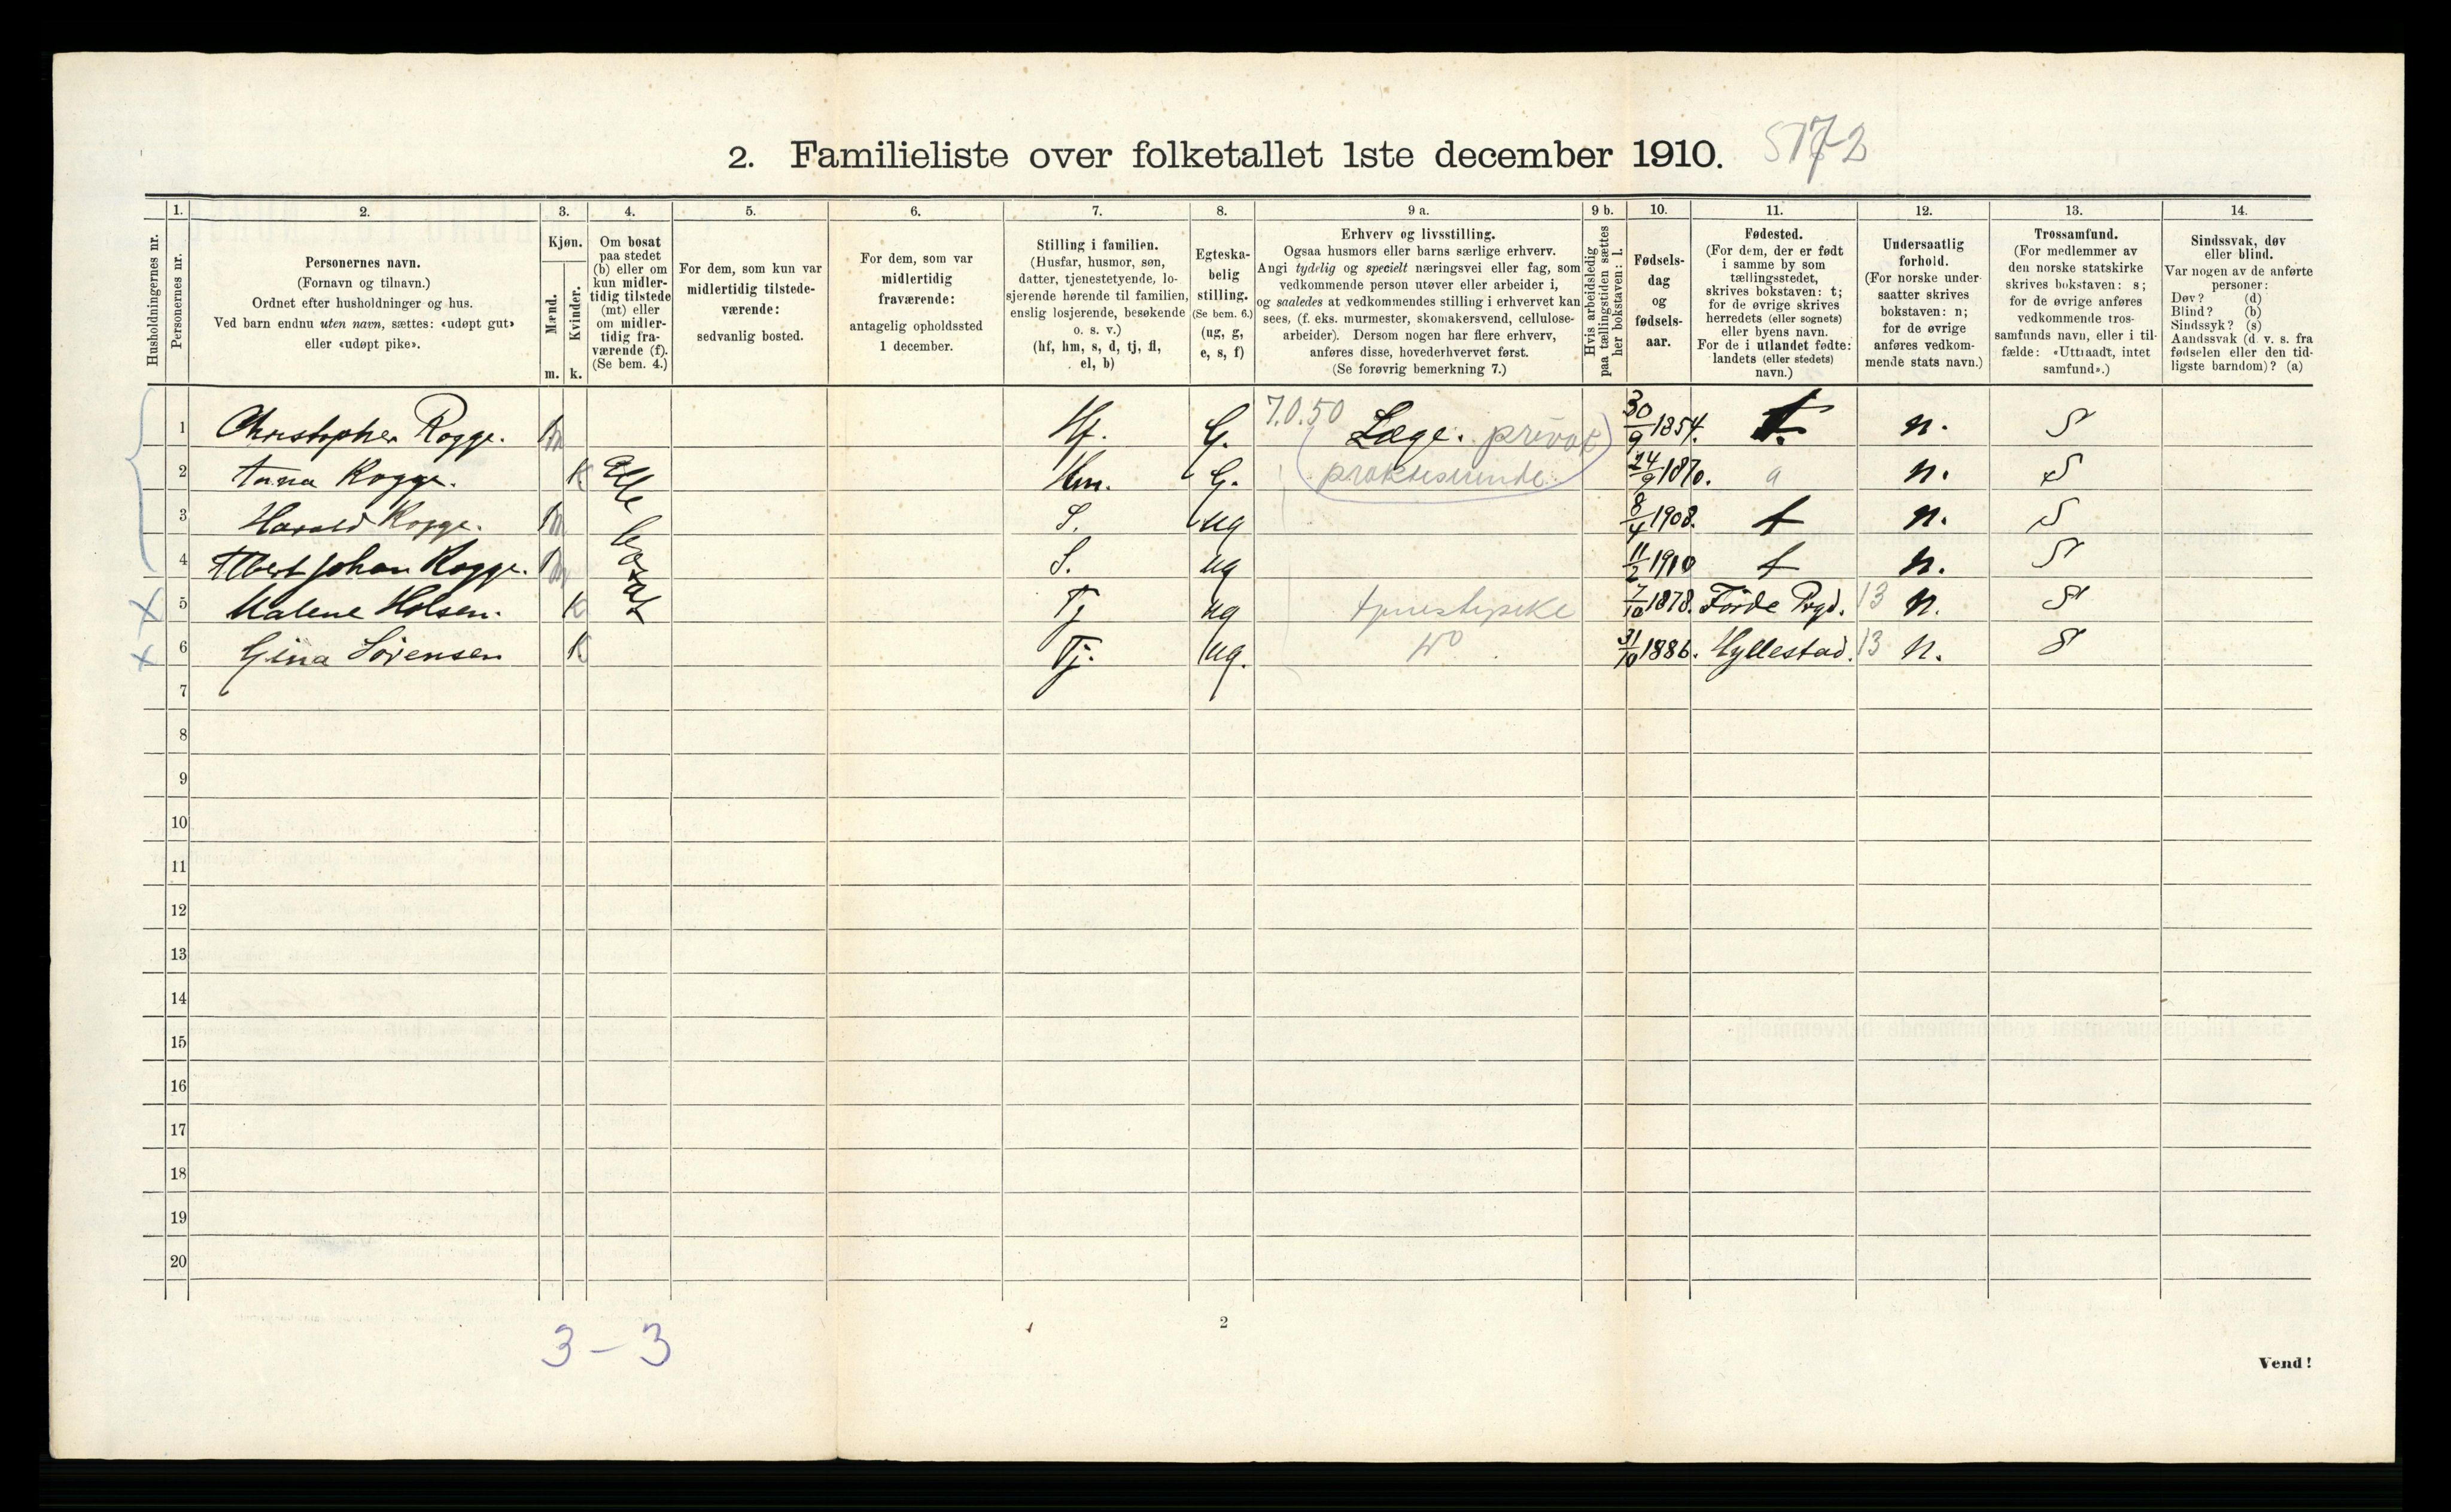 2. Familieliste over folketallet 1ste december 1910. 5172
1. 2. 3. 4. 5. 6. 7. 8. 9 a. 9 b. 10. 11. 12. 13. 14.
Husholdningernes nr.
Personernes nr.
Personernes navn.
(Fornavn og tilnavn.)
Ordnet efter husholdninger og hus.
Ved barn endnu uten navn, sættes: «udøpt gut»
eller «udøpt pike».
Kjøn.
Mænd.
Kvinder.
m. k.
Om bosat
paa stedet
(b) eller om
kun midler-
tidig tilstede
(mt) eller
om midler-
tidig fra-
værende (f).
(Se bem. 4.)
For dem, som kun var
midlertidig tilstede-
værende:
sedvanlig bosted.
For dem, som var
midlertidig
fraværende:
antagelig opholdssted
1 december.
Stilling i familien.
(Husfar, husmor, søn,
datter, tjenestetyende, lo-
sjerende hørende til familien,
enslig losjerende, besøkende
o. s. v.)
(hf, hm, s, d, tj, fl,
el, b)
Egteska-
belig
stilling.
(Se bem. 6.)
(ug, g,
e, s, f)
Erhverv og livsstilling.
Ogsaa husmors eller barns særlige erhverv.
Angi tydelig og specielt næringsvei eller fag, som
vedkommende person utøver eller arbeider i,
og saaledes at vedkommendes stilling i erhvervet kan
sees, (f. eks. murmester, skomakersvend, cellulose-
arbeider). Dersom nogen har flere erhverv,
anføres disse, hovederhvervet først.
(Se forøvrig bemerkning 7.)
Hvis arbeidsledig
paa tællingstiden sættes
her bokstaven: l.
Fødsels-
dag
og
fødsels-
aar.
Fødested.
(For dem, der er født
i samme by som
tællingsstedet,
skrives bokstaven: t;
for de øvrige skrives
herredets (eller sognets)
eller byens navn.
For de i utlandet fødte:
landets (eller stedets)
navn.)
Undersaatlig
forhold.
(For norske under-
saatter skrives
bokstaven: n;
for de øvrige
anføres vedkom-
mende stats navn.)
Trossamfund.
(For medlemmer av
den norske statskirke
skrives bokstaven: s;
for de øvrige anføres
vedkommende tros-
samfunds navn, eller i til-
fælde: «Uttraadt, intet
samfund».)
Sindssvak, døv
eller blind.
Var nogen av de anførte
personer:
Døv? (d)
Blind? (b)
Sindssyk? (s)
Aandssvak (d. v. s. fra
fødselen eller den tid-
ligste barndom)? (a)
1 Christopher Rogge. m Hf. G. 7.0.50 Læge. privat 30/9 1854. t. n. S
2 Anna Rogge. k Hm. G. praktiserende 24/9 1870. a n. S
3 Harald Rogge. m S. ug 8/4 1908. t n. S
4 Albert Johan Rogge. m S. ug 11/2 1910 t n. S
Alle bosat
X 5 Malene Holsen. k Tj ug tjenestepike 7/10 1878. Førde Pgd. 13 n. S
X 6 Gina Sørensen k Tj. ug. do 31/10 1886. Hyllestad. 13 n. S
7
8
9
10
11
12
13
14
15
16
17
18
19
20
3 - 3
2
Vend!